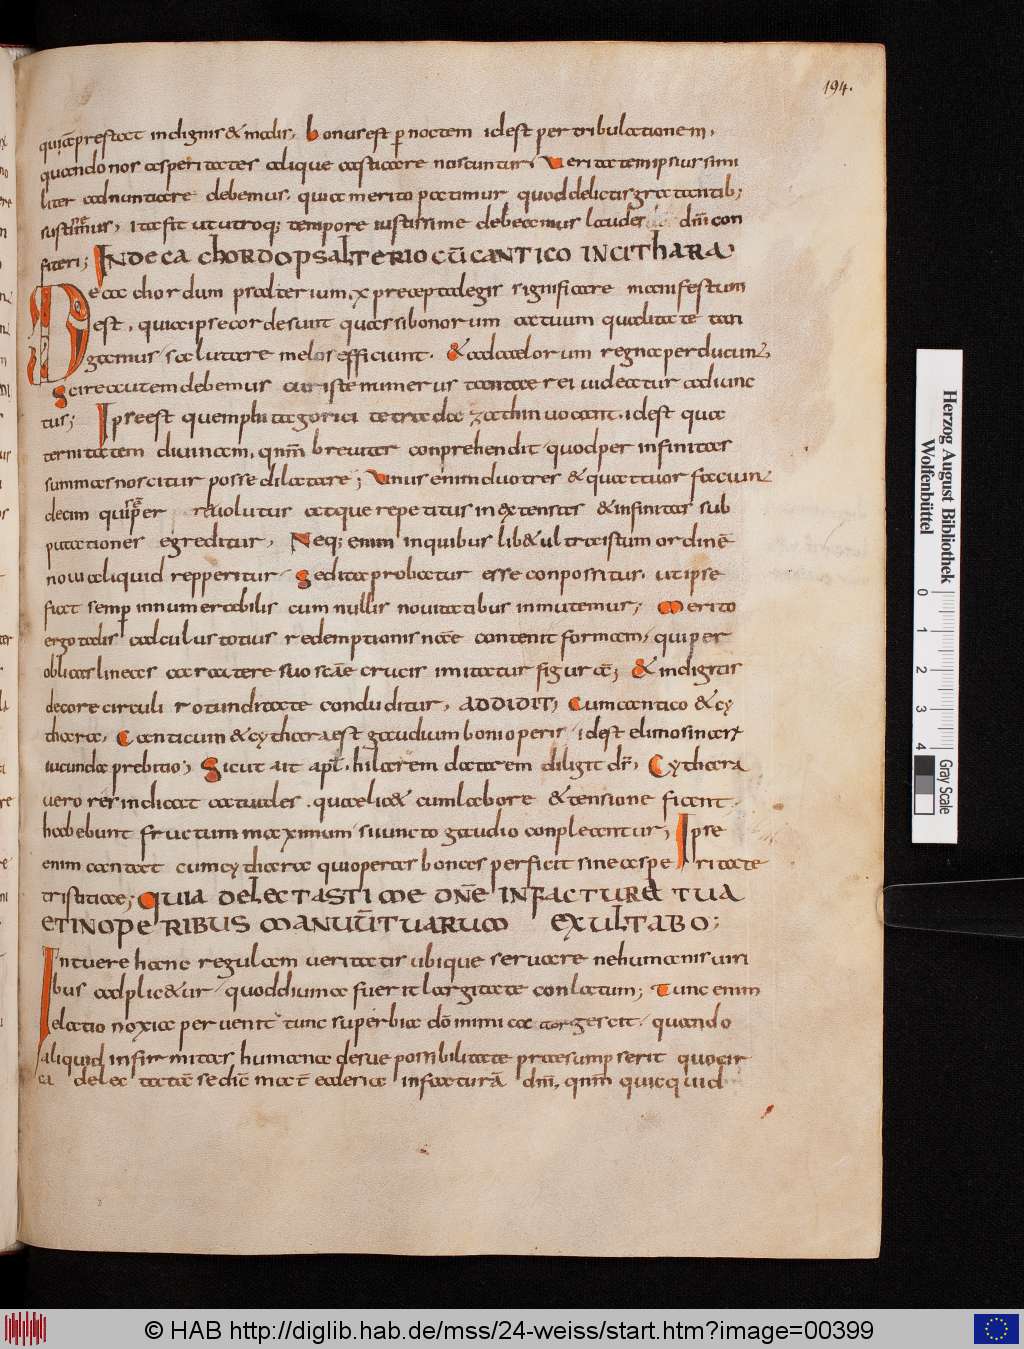 194.
quia prestat indignis & malis. bonus est p noctem idest per tribulationem,
quando nos asperitates alique castigare noscuntur; Veritatem ipsius simi
liter adnuntiare debemus, quia merito patimur quod delictis gratantib;
sustinemus, ita fit ut utroq; tempore iustissime debeamus laudes dnī con
fiteri; INDECA CHORDO PSALTERIO CŪ CANTICO IN CITHARA
Decachordum psalterium, x precepta legis significare manifestum
est, quia ipse cordes sunt quas si bonorum actuum qualitate tan
gamus salutare melos efficiunt. & ad caelorum regna perducunt,
Scire autem debemus cur iste numerus tantae rei uideatur adiunc
tus; Ipse est quem phitagorici tetrada zathin uocant, idest qua
ternitatem diuinam, qnm̄ breuiter conprehendit quod per infinitas
summas noscitur posse dilatare; Unus enim duo tres & quattuor faciunt
decim qui semper reuolutus atque repetitus in extensas & infinitas sub
putationes egreditur, Neq; enim in quibus lib& ultra istum ordinē
noui aliquid repperitur Sed ita probatur esse conpossitus, ut ipse
fiat semp innumerabilis cum nullis nouitatibus inmutemus; Merito
ergo talis calculus totius redemptionis nr̄ae continit formam, qui per
obliquas lineas caractere suo scāe crucis imitatur figurā; & indigitis
decore circuli rotunditate conduditur, ADDIDIT, Cum cantico & cy
thara, Canticum & cythara est gaudium boni operis, idest elimosinar
iucunda prebitio; Sicut ait apl̄. hilarem datorem diligit ds̄, Cythara
uero res indicat actuales, quae lic& cum labore & tensione fiant
habebunt fructum maximum si iuncto gaudio conpleantur; Ipse
enim cantat cum cythara qui operas bonas perficit sine asperitate
tristitiae; QUIA DELECTASTI ME DN̄E IN FACTURA TUA
ET IN OPERIBUS MANUŪ TUARUM EXULTABO;
Intuere hanc regulam ueritatis ubique seruare ne humanis uiri
bus adplic&ur quod diuina fuerit largitate conlatum; Tunc enim
elatio noxia peruenit tunc superbia dominica turgescit, quando
aliquid infirmitas humana de sue possibilitate praesumpserit quo cir
ca delectatā se dic̄ mat̄ eclesia in facturā dnī, qnm̄ quicquid
Herzog August Bibliothek
Wolfenbüttel
0 1 2 3 4
Gray Scale
© HAB http://diglib.hab.de/mss/24-weiss/start.htm?image=00399